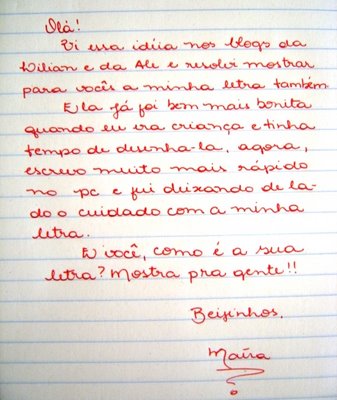 Olá!
Vi essa idéia nos blogs da
Lilian e da Ale e resolvi mostrar
para vocês a minha letra também.
Ela já foi bem mais bonita
quando eu era criança e tinha
tempo de desenha-la, agora,
escrevo muito mais rápido
no pc e fui deixando de la-
do o cuidado com a minha
letra.
E você, como é a sua
letra? Mostra pra gente!!
Beijinhos.
Maíra